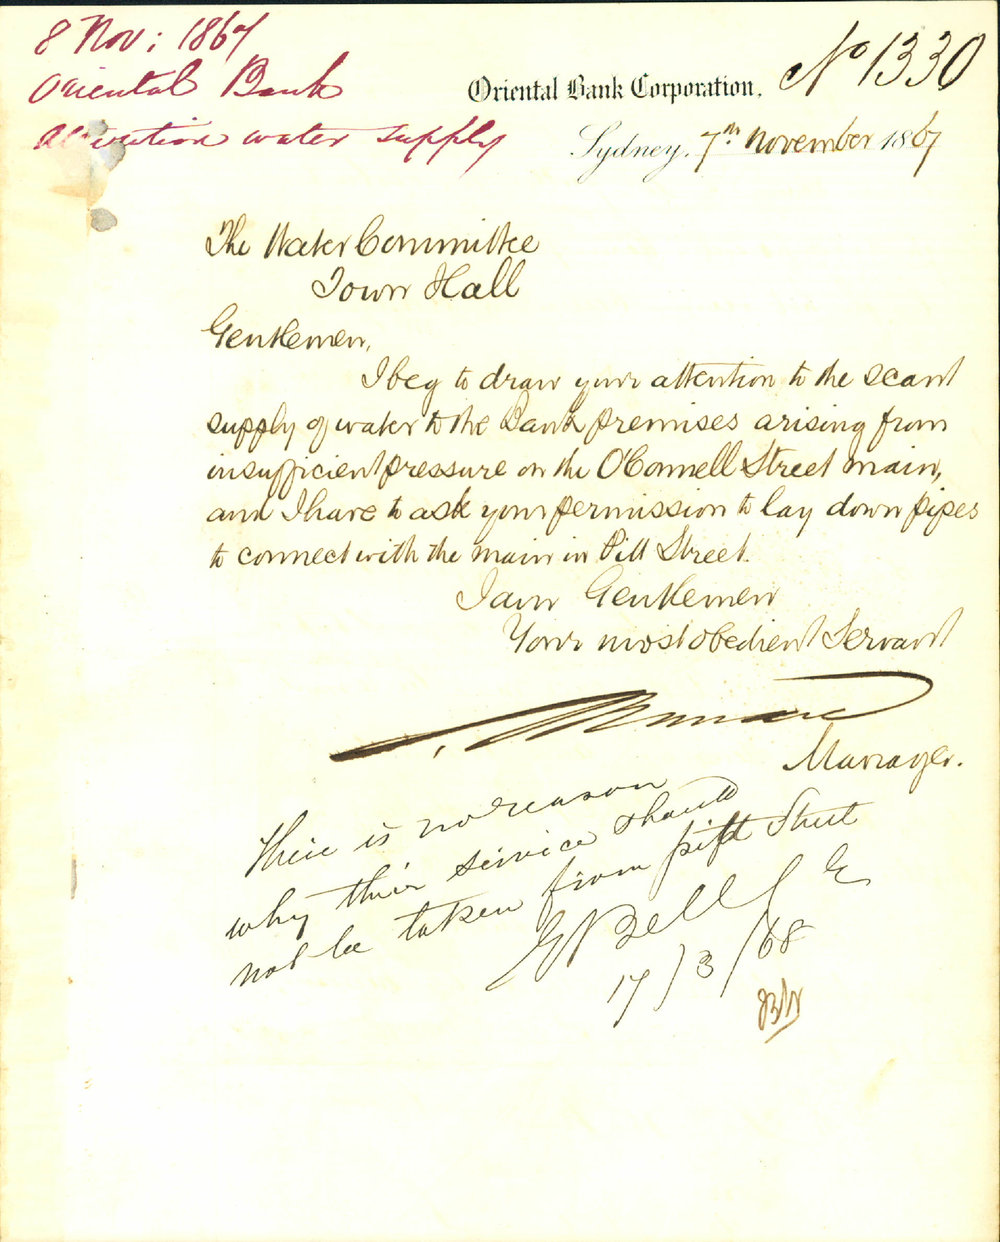 8 Nov: 1867
Oriental Bank
water supply
Oriental Bank Corporation.
No 1330
Sydney, 7th November 1867
The Water Committee
Town Hall
Gentlemen,
I beg to draw your attention to the scant
supply of water to the Bank premises arising from
insufficient pressure on the O'Connell Street main,
and I have to ask your permission to lay down pipes
to connect with the main in Pitt Street.
I am Gentlemen
Your most obedient Servant
Manager.
There is no reason
why their service should
not be taken from pitt Street
Bell C E
17/3/68